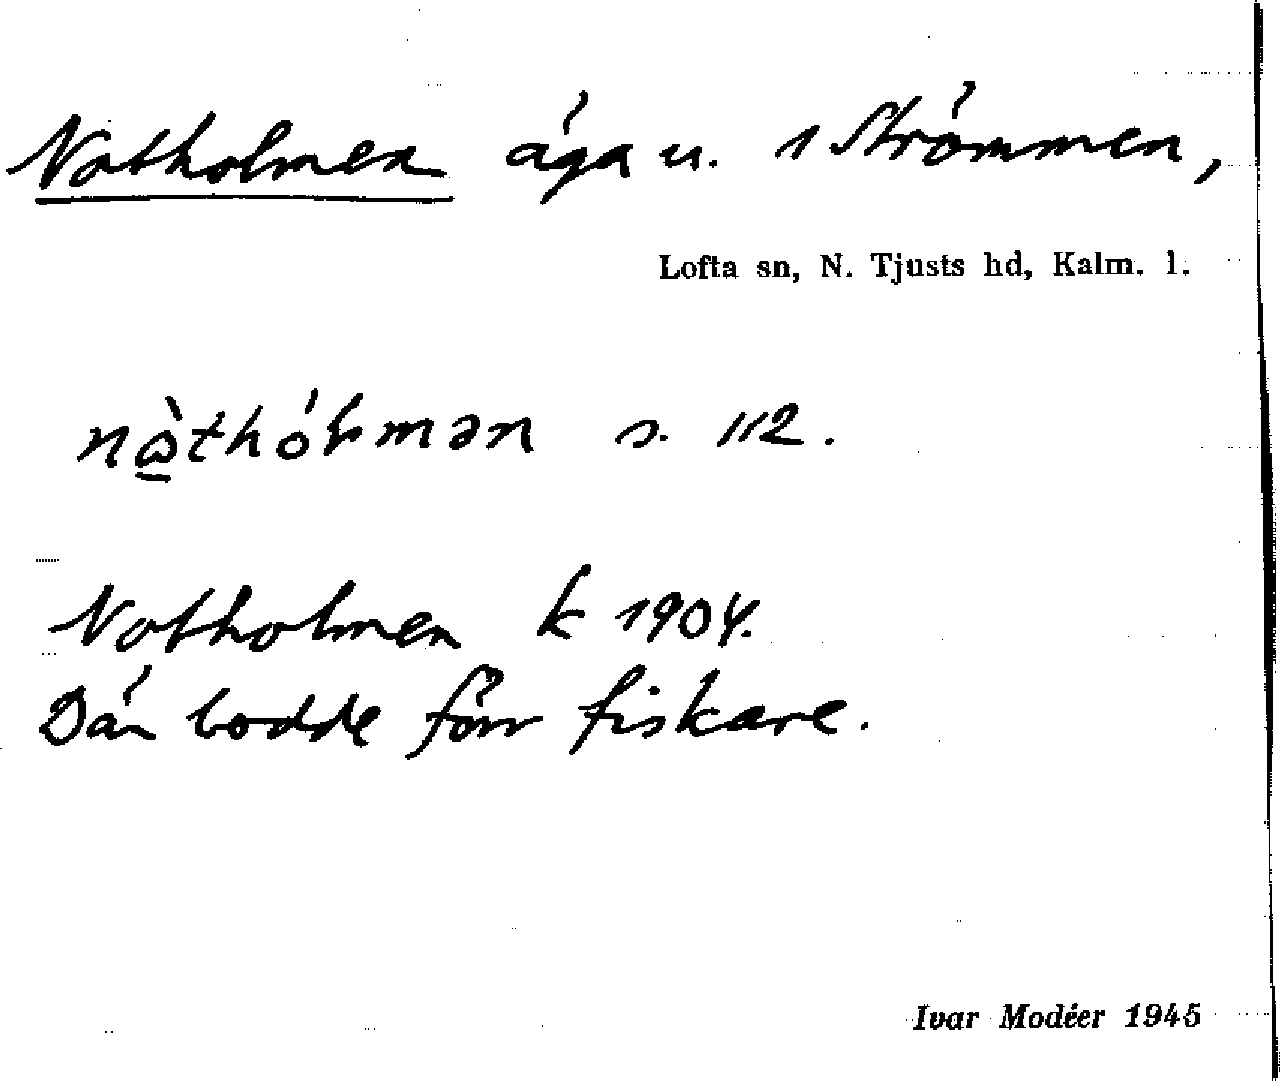 Notholmen äga u. 1 Strömmen,
Lofta sn, N. Tjusts hd, Kalm. l.
nòthóḷmən s. 112.
Notholmen k 1904.
Där bodde förr fiskare.
Ivar Modéer 1945